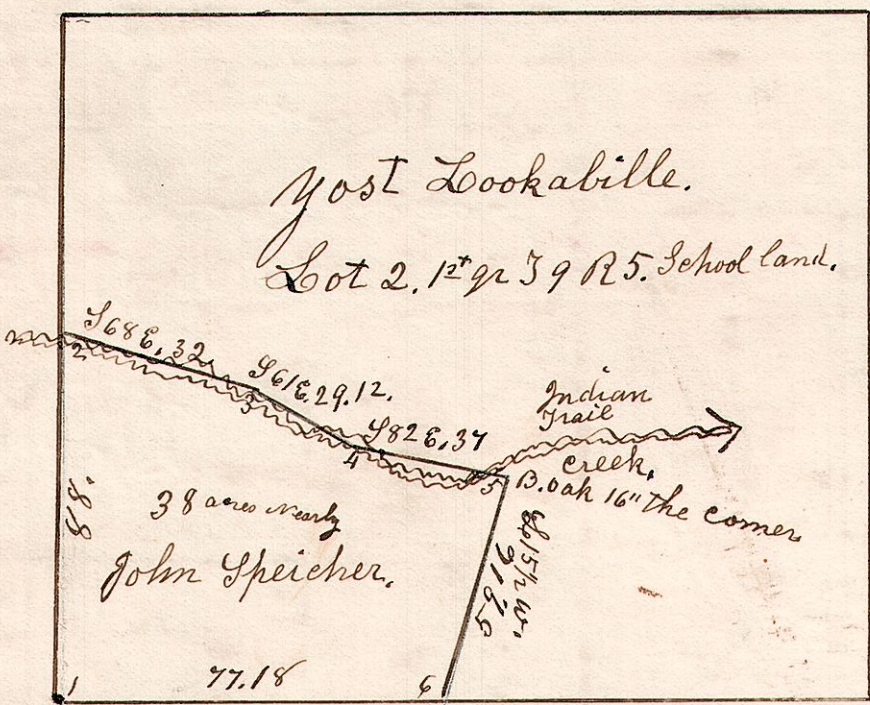 Yost Lookabille.
Lot 2. 1st qr T 9 R 5. School land.
S 68 E, 32
2
S 61 E. 29.12.
3
S 82 E, 37
4
Indian
Trail
Creek.
5
B. oak 16" the corner
88.
38 acres Nearly
John Speicher.
S. 15 1/2 W.
1
77.18
6